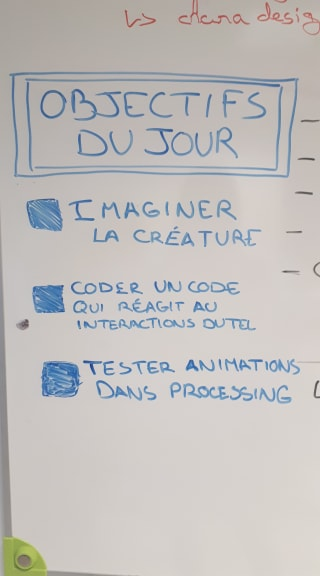 ↳ chara desig
OBJECTIFS
DU JOUR
IMAGINER
LA CRÉATURE
CODER UN CODE
QUI RÉAGIT AU
INTERACTIONS DU TEL
TESTER ANIMATIONS
DANS PROCESSING